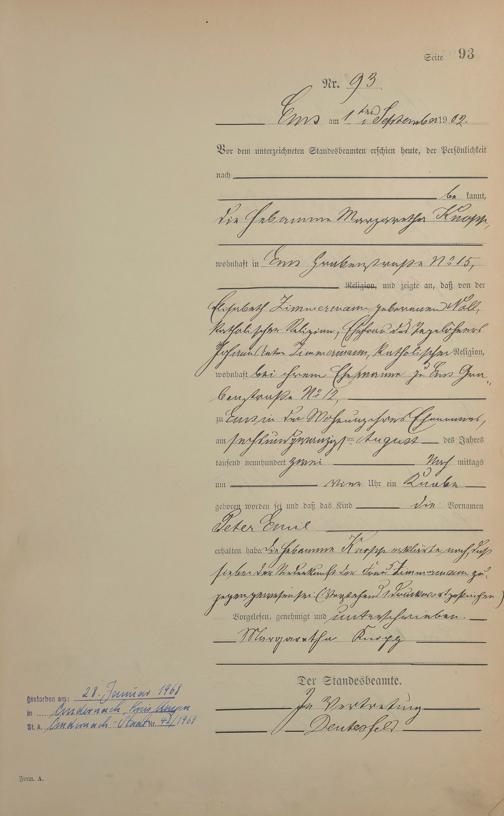 Seite 93
Nr. 93
Ems am 1ten September 1902.
Vor dem unterzeichneten Standesbeamten erschien heute, der Persönlichkeit
nach
be kannt,
die Hebamme Margaretha Knopp,
wohnhaft in Ems Grabenstraße No 15,
Religion, und zeigte an, daß von der
Elisabeth Zimmermann geborenen Noll,
katholischer Religion, Ehefrau des Tagelöhners
Johann Zimmermann, katholischer Religion,
wohnhaft bei ihrem Ehemanne zu Ems Gra-
benstraße No 12,
zu Ems in der Wohnung ihres Ehemannes,
am sechsundzwanzigsten August des Jahres
tausend neunhundert zwei Nach mittags
um Uhr ein Knabe
geboren worden sei und daß das Kind die Vornamen
Peter Emil
erhalten habe. Die Hebamme Knopp erklärte noch, daß
sie bei der Niederkunft der Frau Zimmermann zu-
gegen gewesen sei (Vorstehend 1 Druckwort gestrichen)
Vorgelesen, genehmigt und unterschrieben.
Margaretha Knopp
Der Standesbeamte.
In Vertretung
Gestorben am: 28. Januar 1968
in Andernach, Kreis Mayen
St. A. Andernach-Stadt Nr. 48/1968
Form. A.